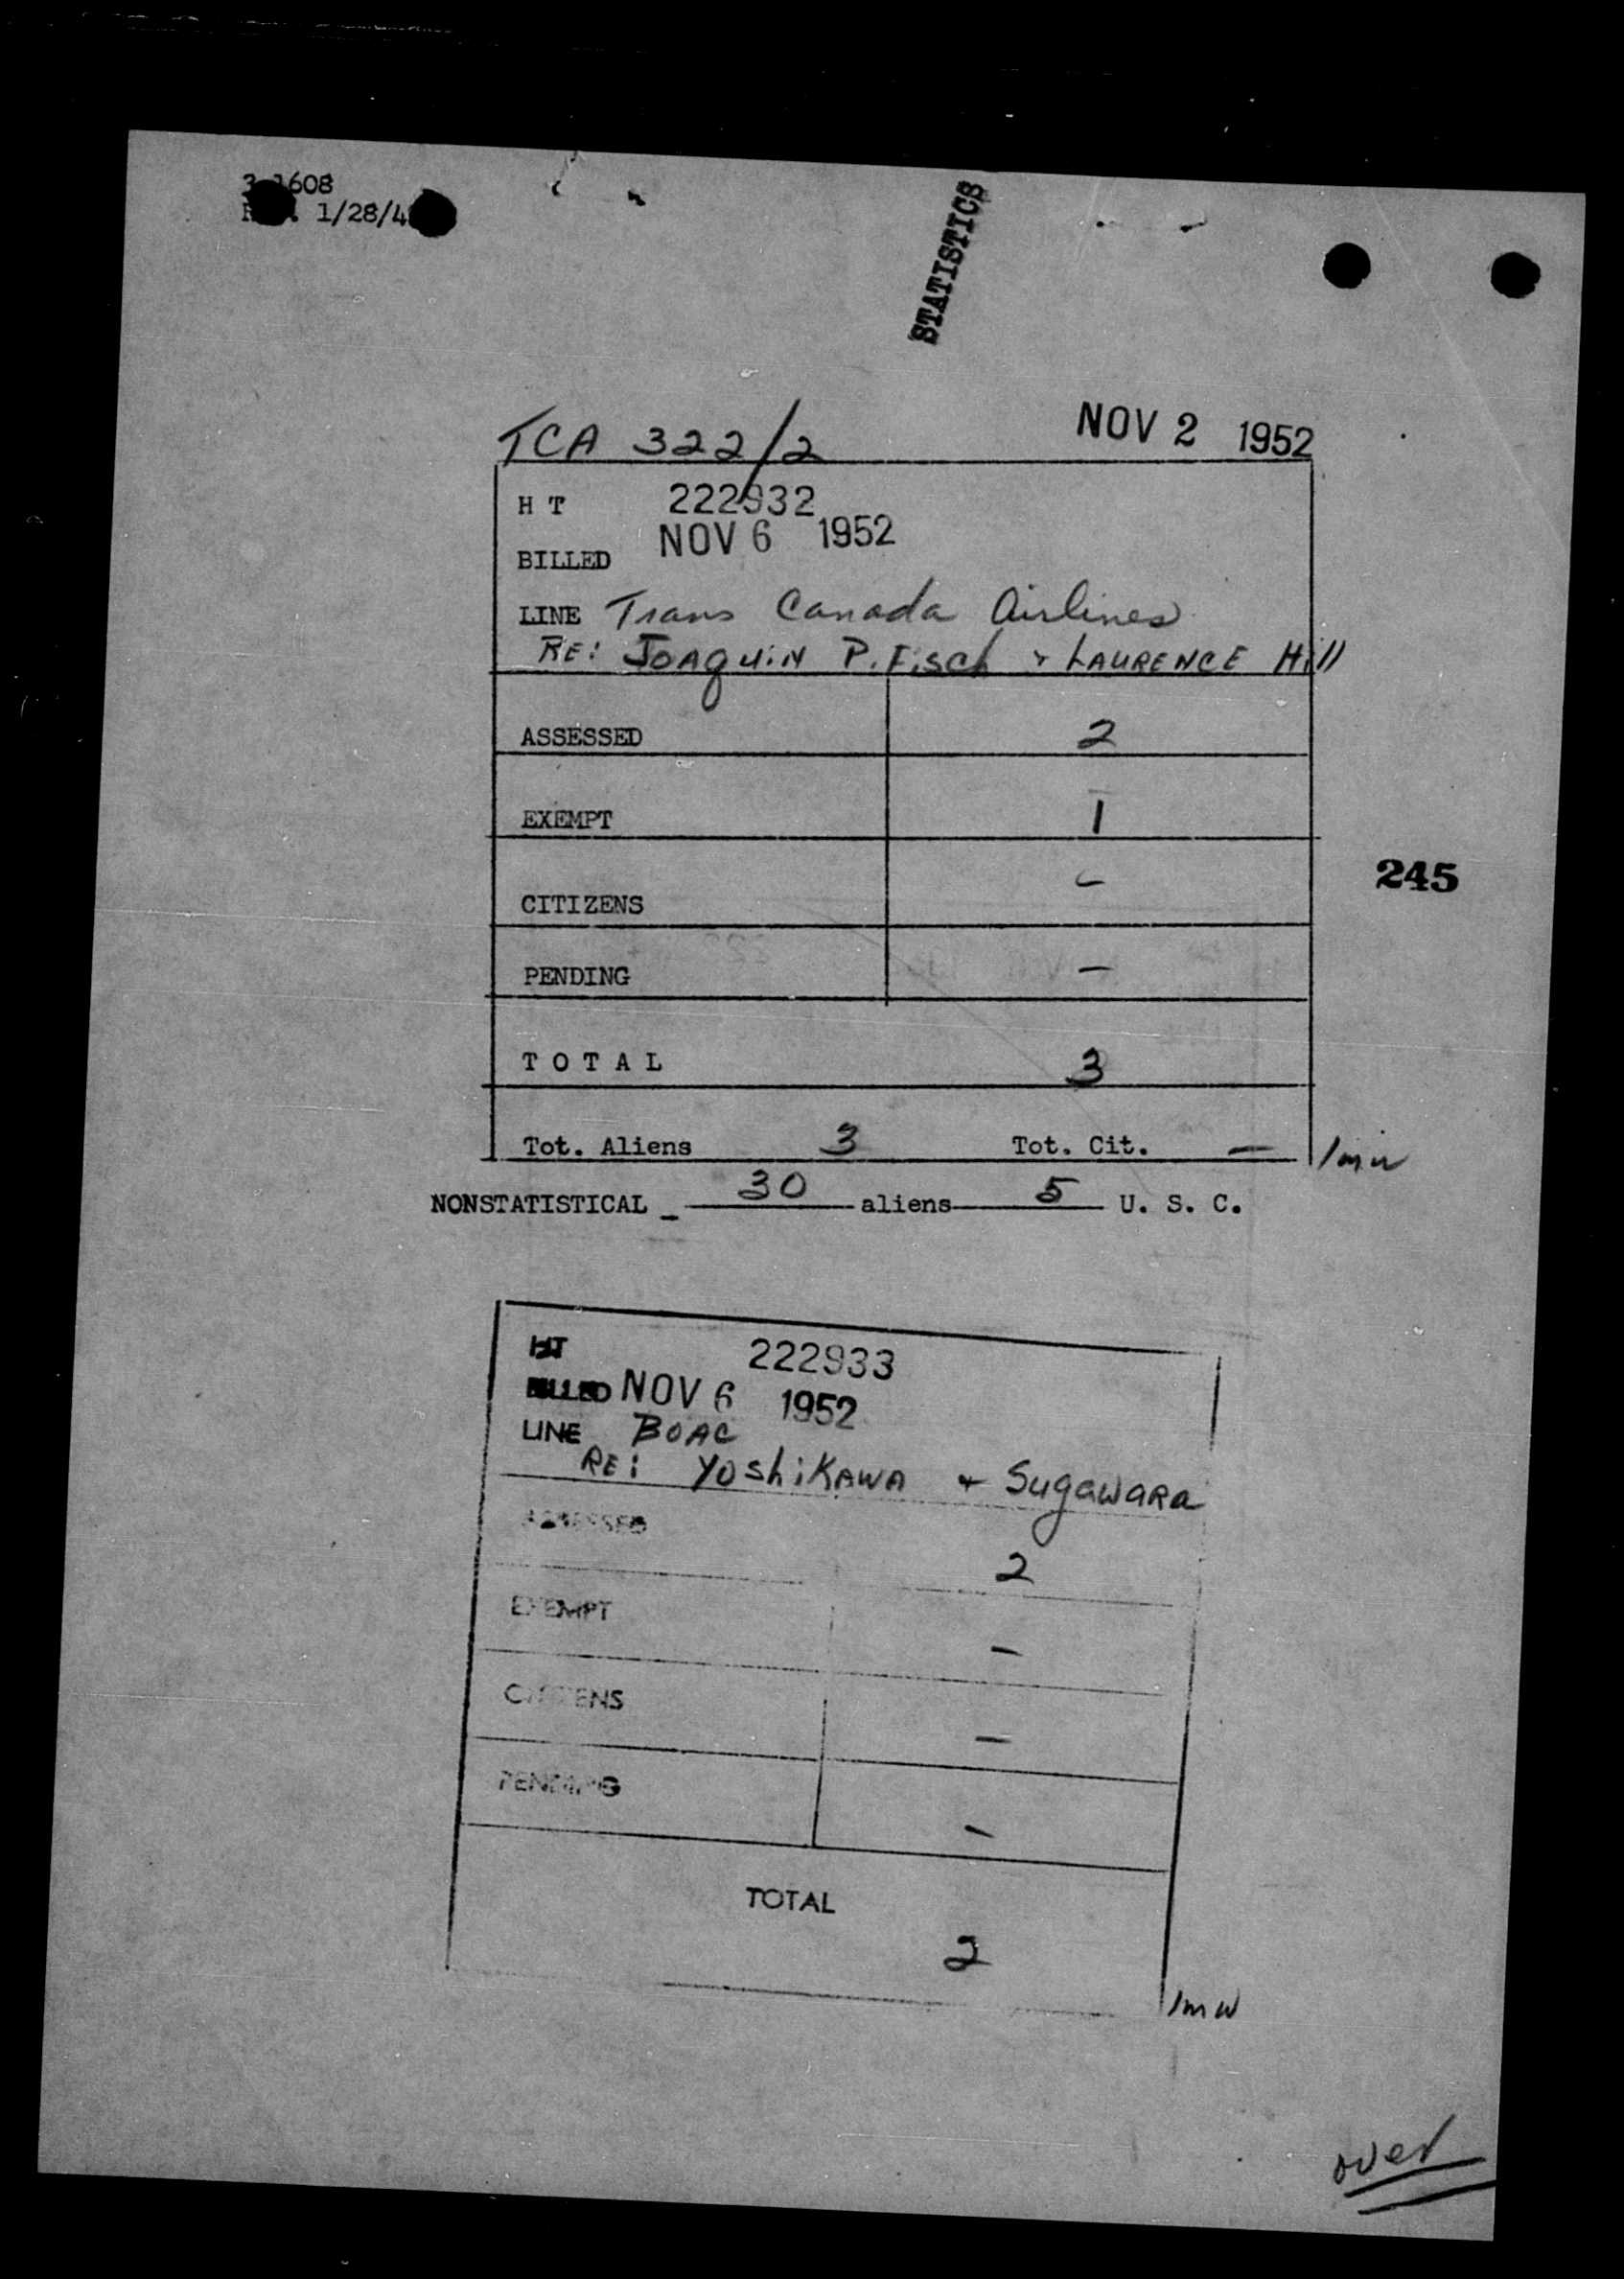 1608
1/28/4
STATISTICS
TCA 322/2 NOV 2 1952
H T 222932
BILLED NOV 6 1952
LINE Trans Canada Airlines
RE: JOAQUIN P. FISCH & LAURENCE Hill
ASSESSED 2
EXEMPT 1
245
CITIZENS -
PENDING -
T O T A L 3
Tot. Aliens 3 Tot. Cit. - /mw
NONSTATISTICAL 30 aliens 5 U. S. C.
HT 222933
BILLED NOV 6 1952
LINE BOAC
RE: YOSHIKAWA & SugAWARA
ASSESSED 2
EXEMPT -
CITIZENS -
PENDING -
TOTAL
2
/mw
over